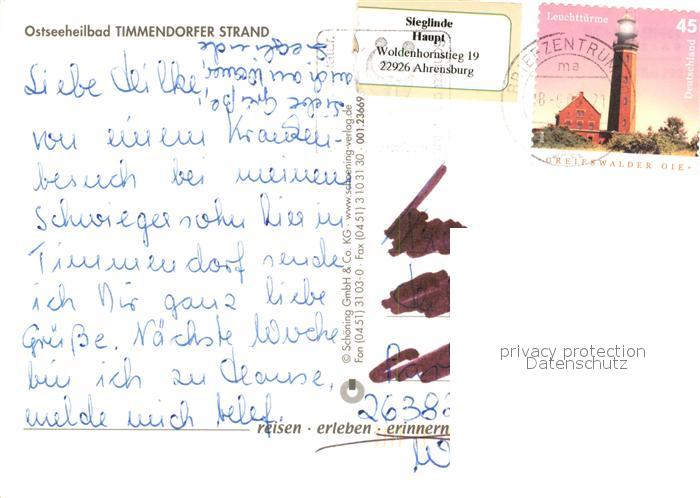 Ostseeheilbad TIMMENDORFER STRAND
Liebe Silke,
von einem Kranken-
besuch bei meinem
Schwiegersohn hier in
Timmendorf sende
ich Dir ganz liebe
Grüße. Nächste Woche
bin ich zu Hause,
melde mich telef.
Liebe Grüße
auch an Werner,
Sieglinde
reisen · erleben · erinnern
© Schöning GmbH & Co. KG · www.schoening-verlag.de
Fon (04 51) 31 03-0 · Fax (04 51) 3 10 31 30 · 001.23669
Sieglinde
Haupt
Woldenhornstieg 19
22926 Ahrensburg
Leuchttürme
45
Deutschland
GREIFSWALDER OIE
BRIEFZENTRUM
ma
26386
W
privacy protection
Datenschutz